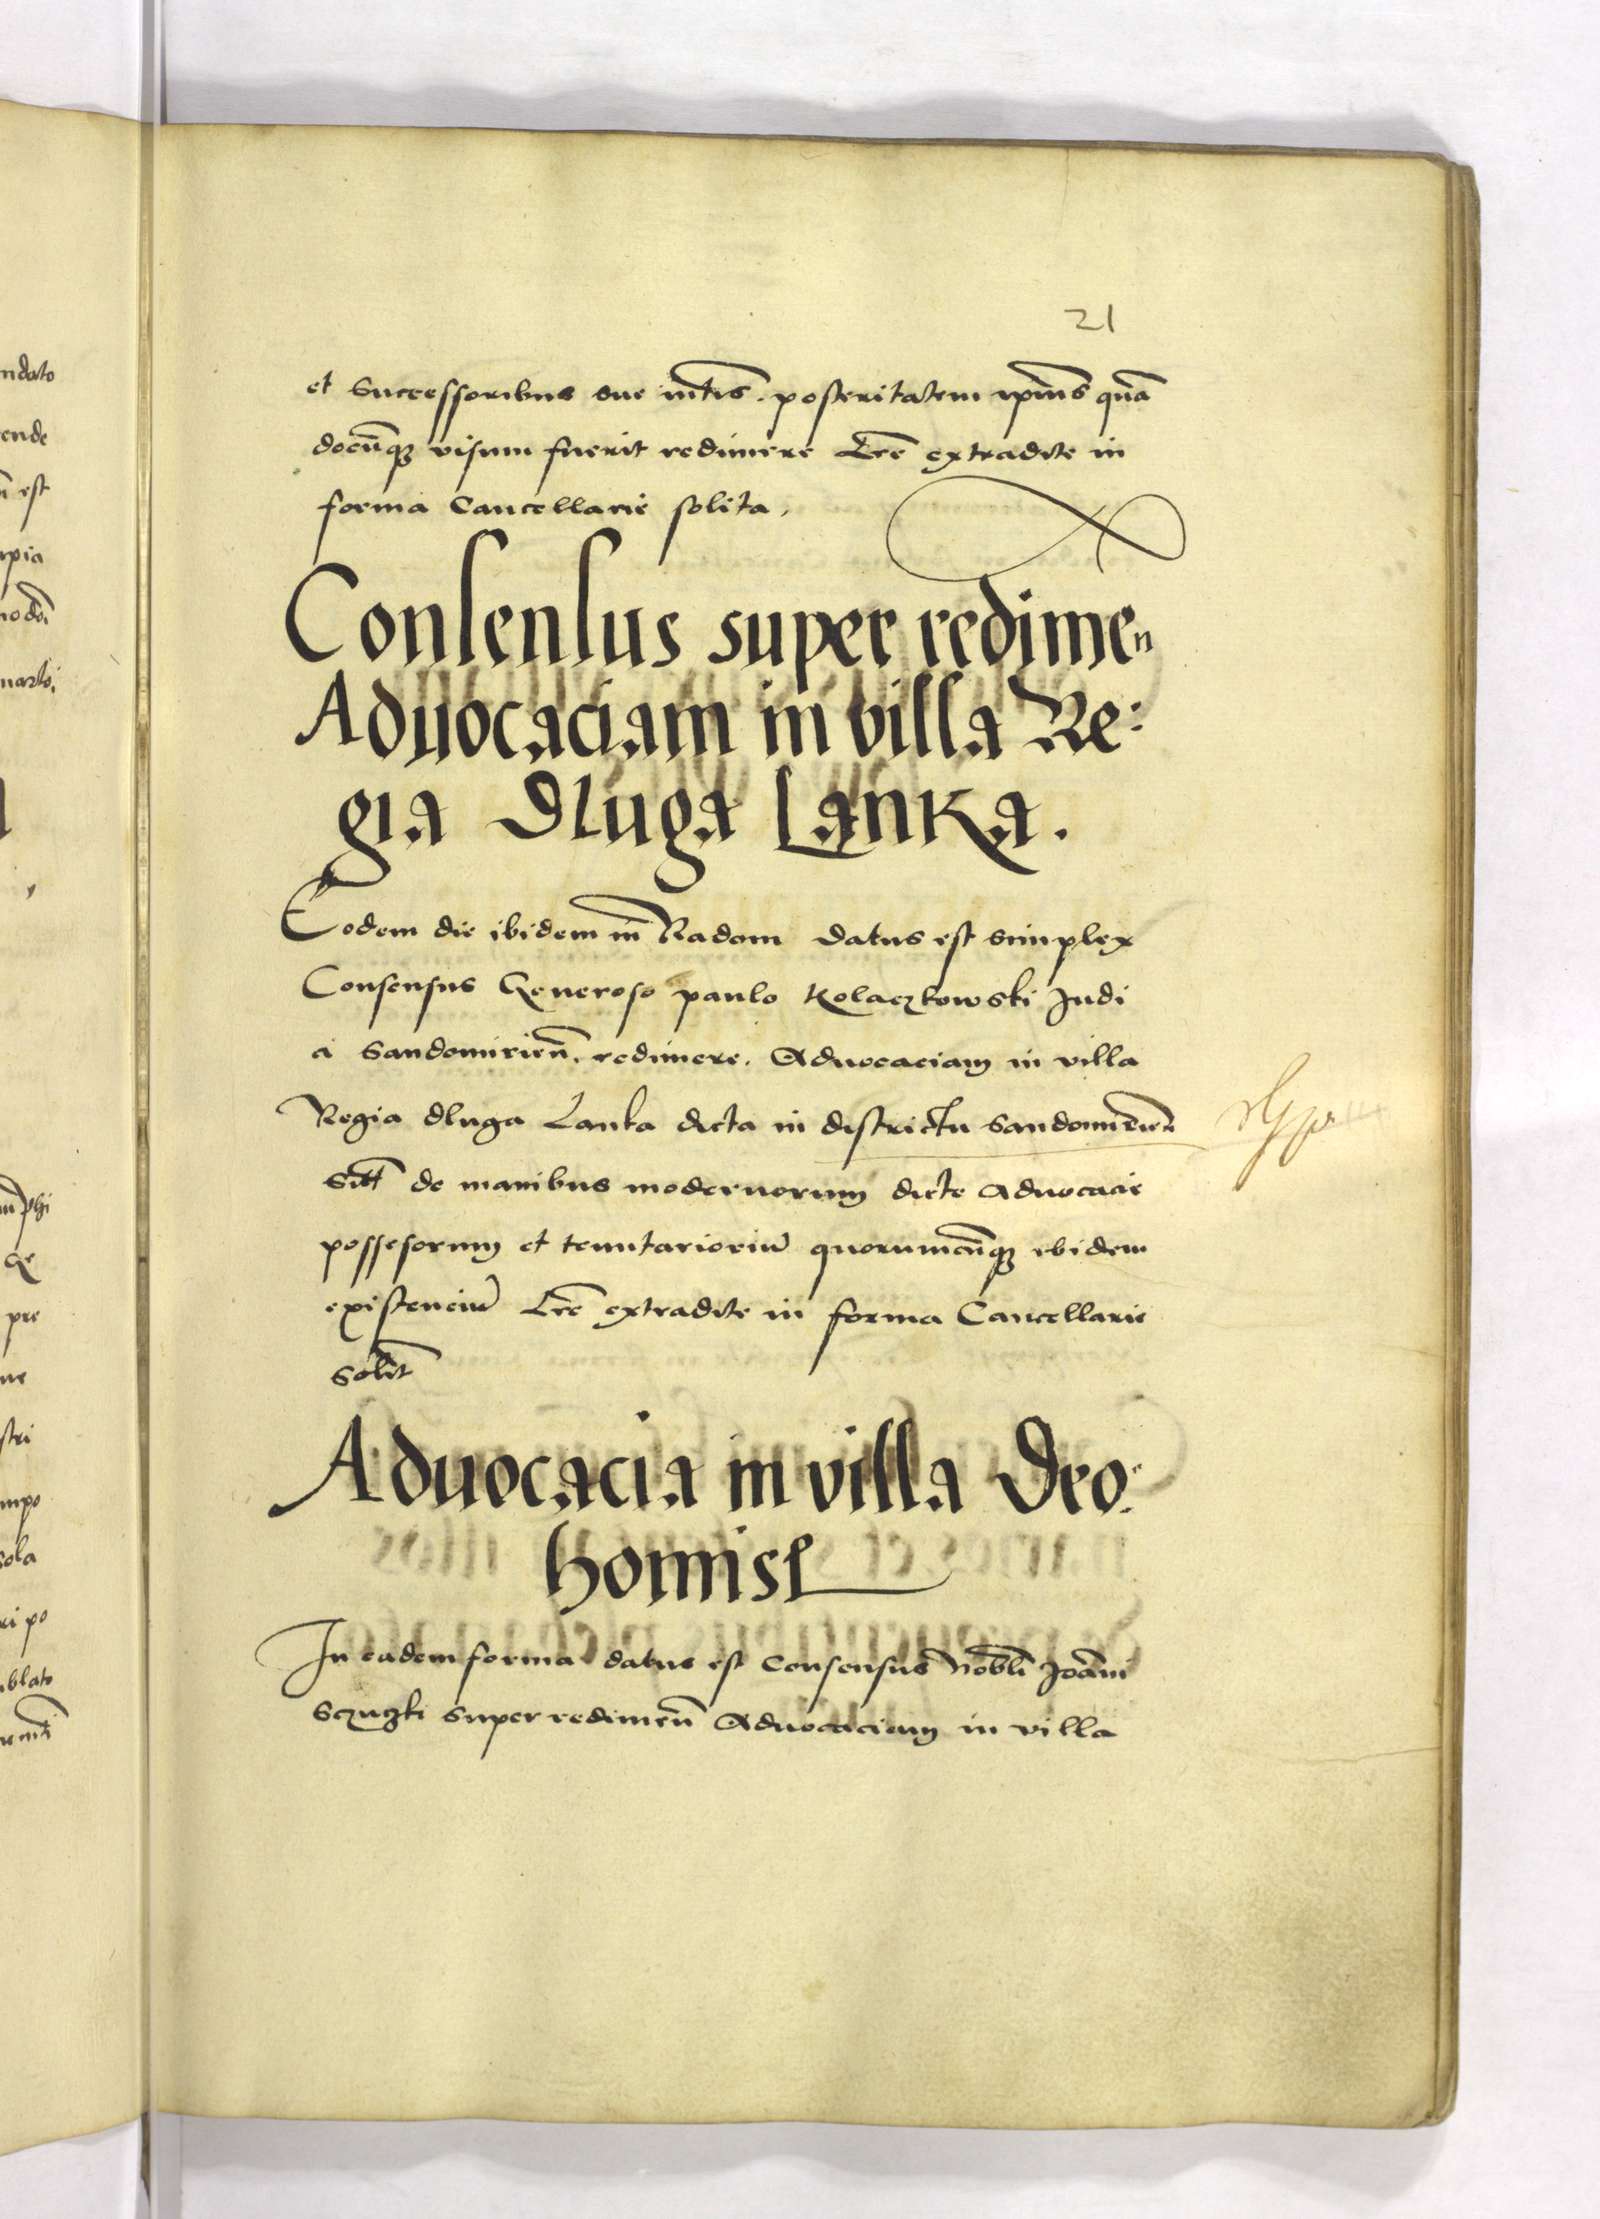 21
et Successoribus sue mtis. posteritatem ipius qua
docūqz visum fuerit redimere Lre extradite in
forma Cancellarie solita.
Consensus super redimen
Advocaciam in villa Re:
gia Dluga Lanka.
Eodem die ibidem in Radom datus est simplex
Consensus Generoso paulo Kolaczkowski Judi
ci Sandomirien. redimere. Advocaciam in villa
Regia dluga Lanka dicta in districtu Sandomirien
Sitt de manibus modernorum dicte Advocacie
possesorum et tenutariorum quorumcūqz ibidem
existenciū Lre extradite in forma Cancellarie
Solit
Advocacia in villa Dro:
homisl
In eadem forma datus est Consensus Nobli Joāni
Sczuczki super redimen Advocaciam in villa
ndato
ende
est
pia
martij
phi
Ge
pre
ne
stri
mpo
sola
ri po
blato